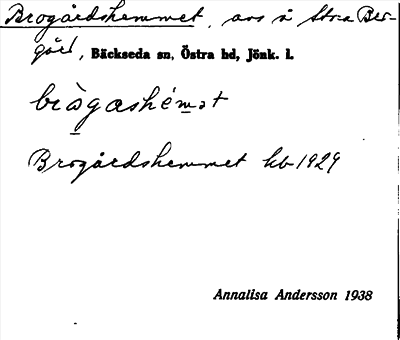 Brogårdshemmet, avs å Stra Ber-
gård, Bäckseda sn, Östra hd, Jönk. l.
Brogårdshemmet kb 1929
Annalisa Andersson 1938